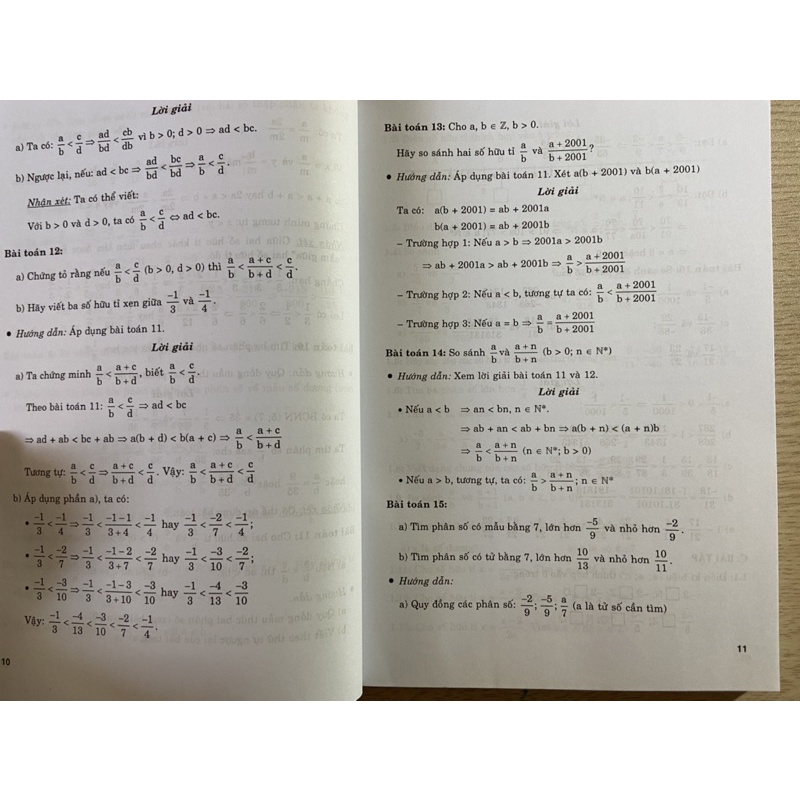 Lời giải
a) Ta có: a/b < c/d ⇒ ad/bd < cb/db vì b > 0; d > 0 ⇒ ad < bc.
b) Ngược lại, nếu: ad < bc ⇒ ad/bd < bc/bd ⇒ a/b < c/d.
Nhận xét: Ta có thể viết:
Với b > 0 và d > 0, ta có a/b < c/d ⇔ ad < bc.
Bài toán 12:
a) Chứng tỏ rằng nếu a/b < c/d (b > 0, d > 0) thì a/b < (a + c)/(b + d) < c/d.
b) Hãy viết ba số hữu tỉ xen giữa −1/3 và −1/4.
• Hướng dẫn: Áp dụng bài toán 11.
Lời giải
a) Ta chứng minh a/b < (a + c)/(b + d), biết a/b < c/d.
Theo bài toán 11: a/b < c/d ⇒ ad < bc
⇒ ad + ab < bc + ab ⇒ a(b + d) < b(a + c) ⇒ a/b < (a + c)/(b + d)
Tương tự: a/b < c/d ⇒ (a + c)/(b + d) < c/d. Vậy: a/b < (a + c)/(b + d) < c/d
b) Áp dụng phần a), ta có:
• −1/3 < −1/4 ⇒ −1/3 < (−1 − 1)/(3 + 4) < −1/4 hay −1/3 < −2/7 < −1/4;
• −1/3 < −2/7 ⇒ −1/3 < (−1 − 2)/(3 + 7) < −2/7 hay −1/3 < −3/10 < −2/7;
• −1/3 < −3/10 ⇒ −1/3 < (−1 − 3)/(3 + 10) < −3/10 hay −1/3 < −4/13 < −3/10
Vậy: −1/3 < −4/13 < −3/10 < −2/7 < −1/4.
10
Bài toán 13: Cho a, b ∈ ℤ, b > 0.
Hãy so sánh hai số hữu tỉ a/b và (a + 2001)/(b + 2001)?
• Hướng dẫn: Áp dụng bài toán 11. Xét a(b + 2001) và b(a + 2001)
Lời giải
Ta có: a(b + 2001) = ab + 2001a
b(a + 2001) = ab + 2001b
– Trường hợp 1: Nếu a > b ⇒ 2001a > 2001b
⇒ ab + 2001a > ab + 2001b ⇒ a/b > (a + 2001)/(b + 2001)
– Trường hợp 2: Nếu a < b, tương tự ta có: a/b < (a + 2001)/(b + 2001)
– Trường hợp 3: Nếu a = b ⇒ a/b = (a + 2001)/(b + 2001)
Bài toán 14: So sánh a/b và (a + n)/(b + n) (b > 0; n ∈ ℕ*)
• Hướng dẫn: Xem lời giải bài toán 11 và 12.
Lời giải
• Nếu a < b ⇒ an < bn, n ∈ ℕ*.
⇒ ab + an < ab + bn ⇒ a(b + n) < (a + n)b
⇒ a/b < (a + n)/(b + n) (n ∈ ℕ*; b > 0)
• Nếu a > b, tương tự, ta có: a/b > (a + n)/(b + n); n ∈ ℕ*
Bài toán 15:
a) Tìm phân số có mẫu bằng 7, lớn hơn −5/9 và nhỏ hơn −2/9.
b) Tìm phân số có tử bằng 7, lớn hơn 10/13 và nhỏ hơn 10/11.
• Hướng dẫn:
a) Quy đồng các phân số: −2/9; −5/9; a/7 (a là tử số cần tìm)
11